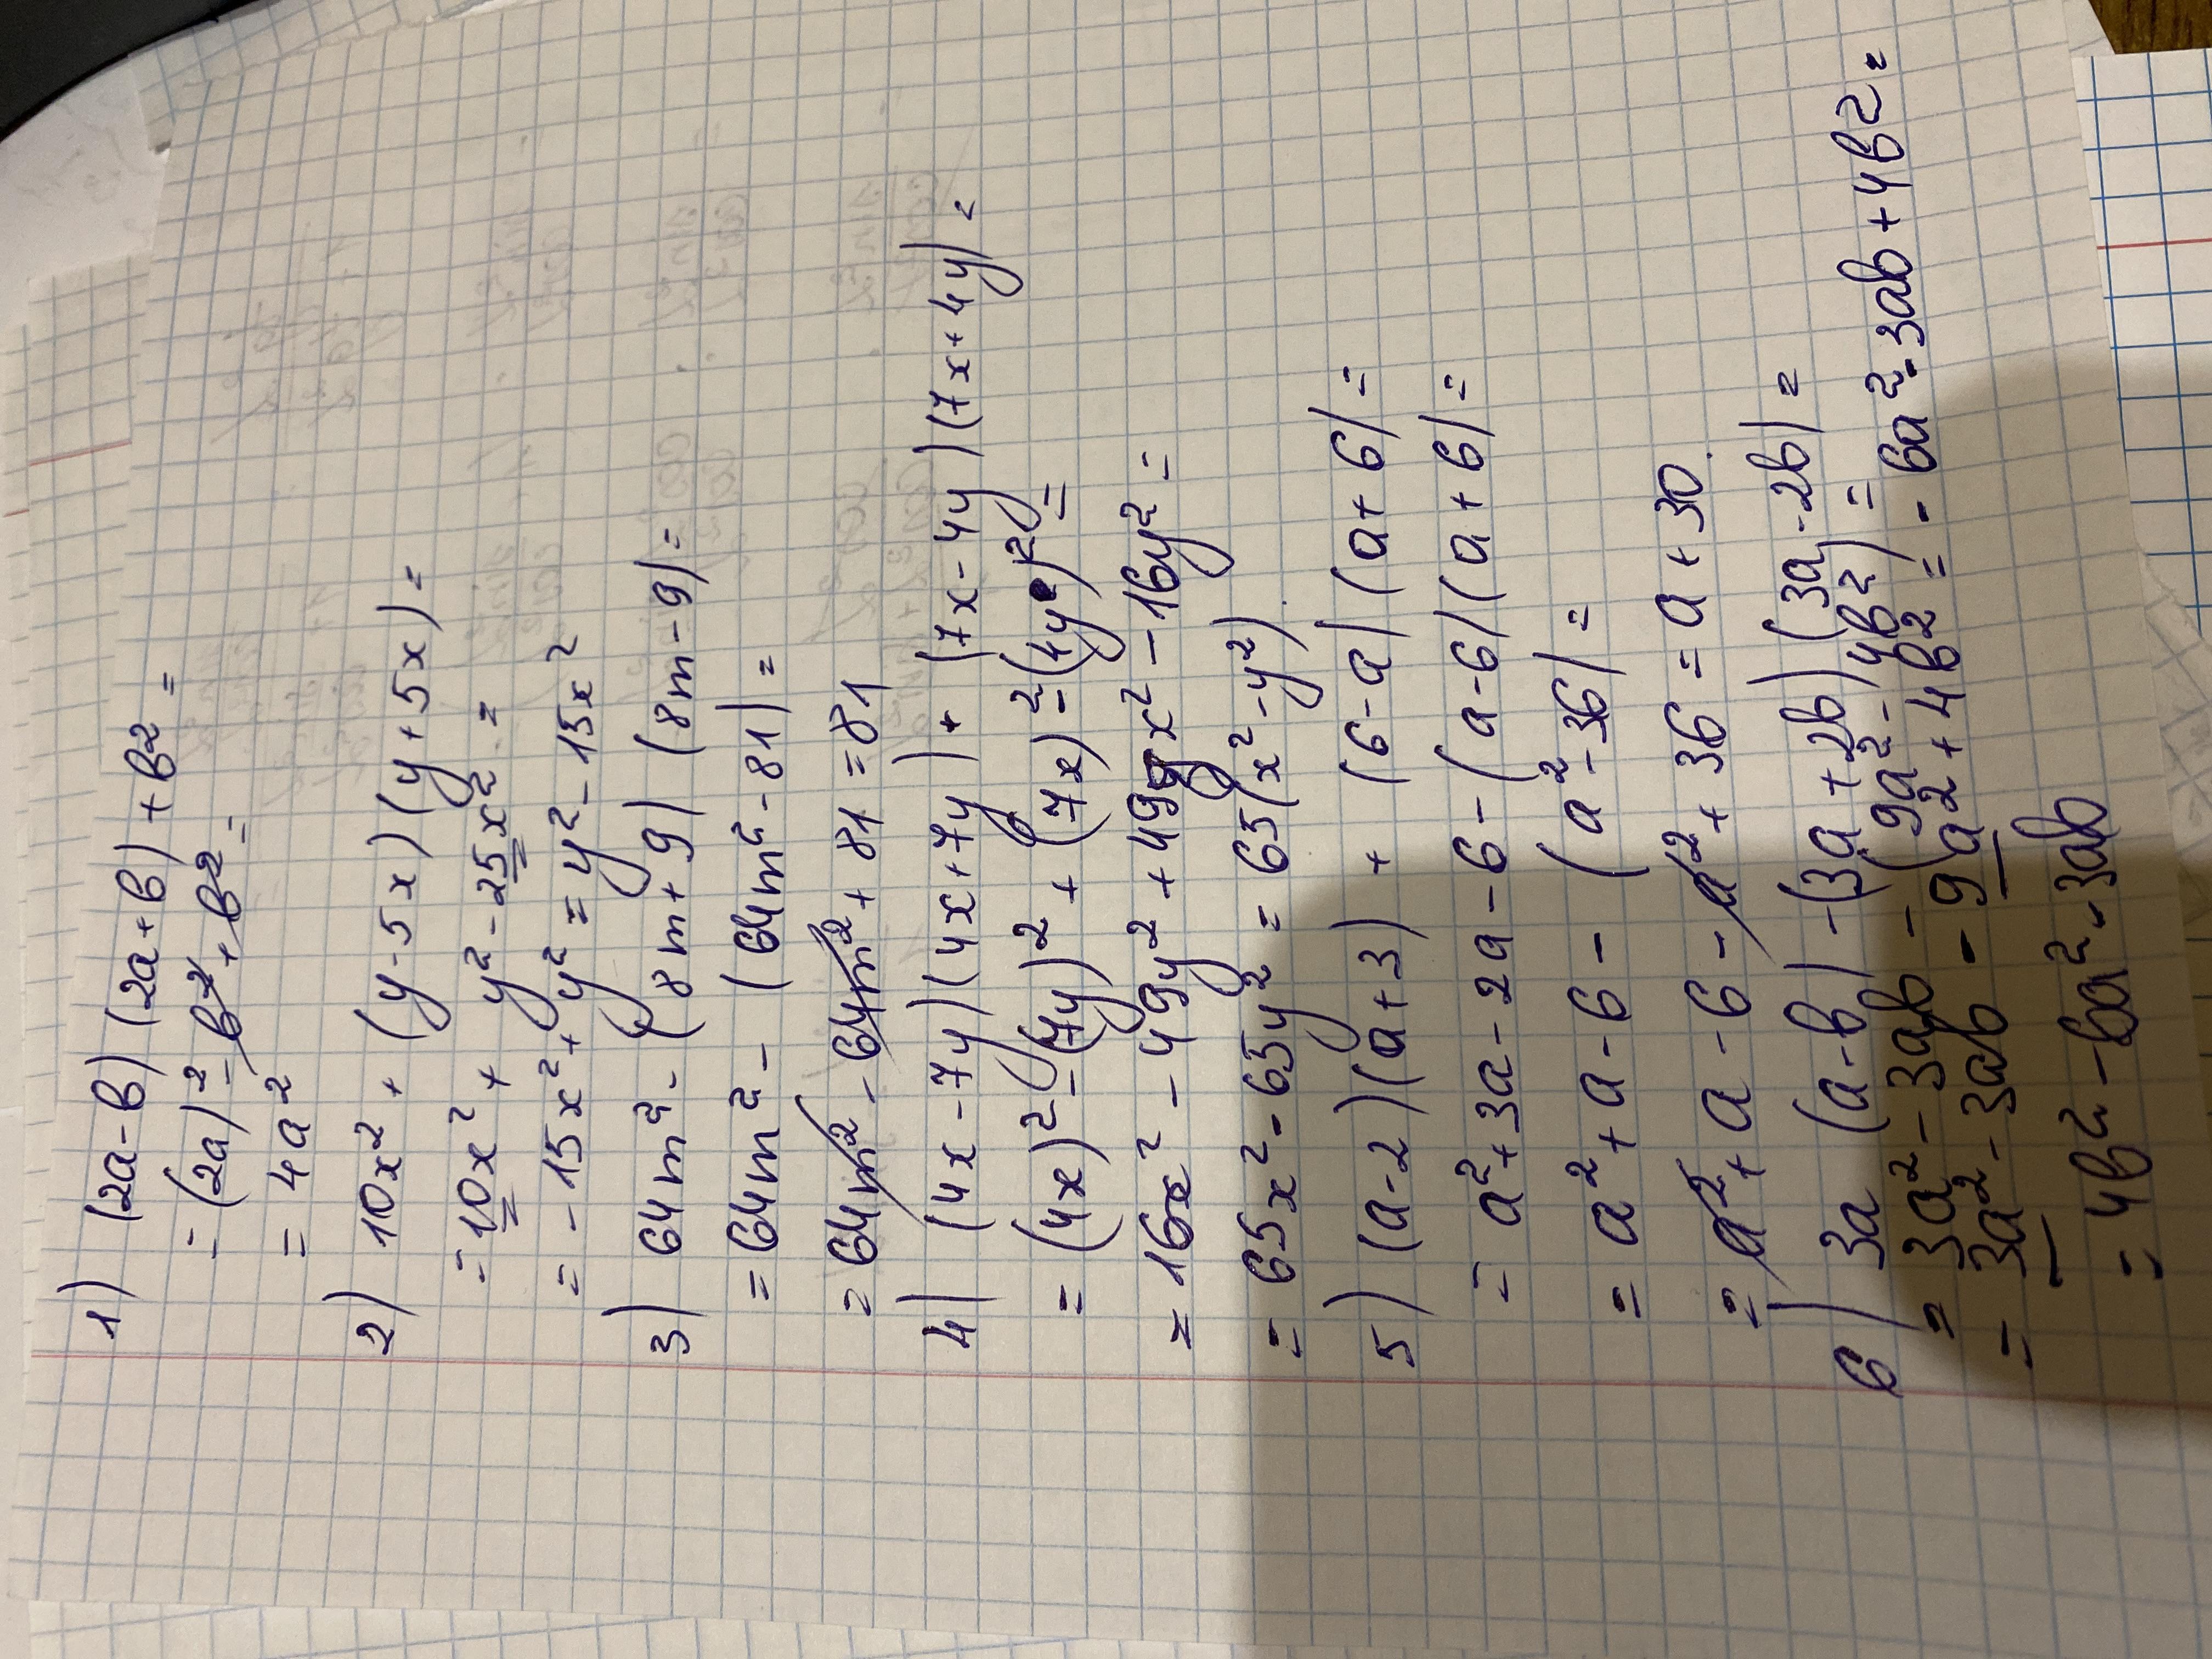 1) (2a-b)(2a+b)+b²=
=(2a)²-b²+b²=
=4a²
2) 10x²+(y-5x)(y+5x)=
=10x²+y²-25x²=
=-15x²+y²=y²-15x²
3) 64m²-(8m+9)(8m-9)=
=64m²-(64m²-81)=
=64m²-64m²+81=81
4) (4x-7y)(4x+7y)+(7x-4y)(7x+4y)=
=(4x)²-(7y)²+(7x)²-(4y)²=
=16x²-49y²+49x²-16y²=
=65x²-65y²=65(x²-y²)
5) (a-2)(a+3)+(6-a)(a+6)=
=a²+3a-2a-6-(a-6)(a+6)=
=a²+a-6-(a²-36)=
=a²+a-6-a²+36=a+30
6) 3a(a-b)-(3a+2b)(3a-2b)=
=3a²-3ab-(9a²-4b²)=
=3a²-3ab-9a²+4b²=-6a²-3ab+4b²=
=4b²-6a²-3ab